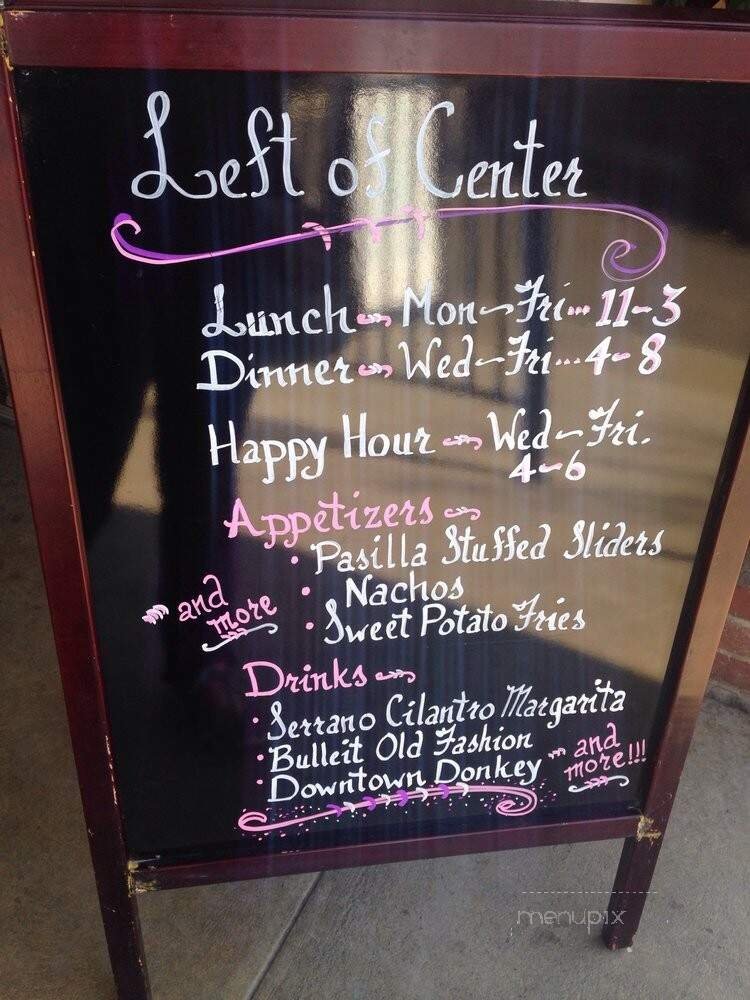 Left of Center
Lunch Mon-Fri... 11-3
Dinner Wed-Fri... 4-8
Happy Hour Wed-Fri.
4-6
Appetizers
• Pasilla Stuffed Sliders
• Nachos
• Sweet Potato Fries
and
more
Drinks
• Serrano Cilantro Margarita
• Bulleit Old Fashion
• Downtown Donkey
and
more!!!
menupix